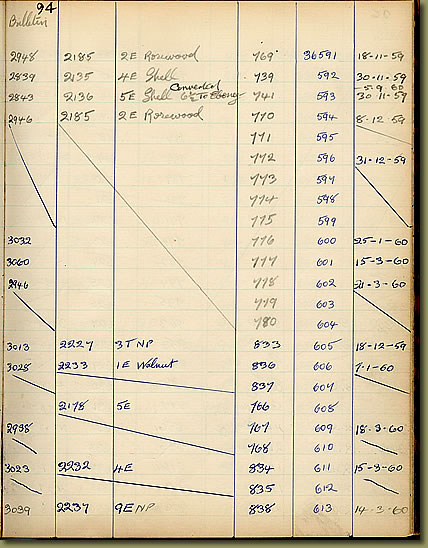 94
Bulletin
2948 2185 2E Rosewood 769 36591 18-11-59
2839 2135 4E Shell 739 592 30-11-59
Converted 5-9-60
2843 2136 5E Shell to Ebony 741 593 30-11-59
2946 2185 2E Rosewood 770 594 8-12-59
771 595
772 596 31-12-59
773 597
774 598
775 599
3032 776 600 25-1-60
3060 777 601 15-3-60
2946 778 602 21-3-60
779 603
780 604
3013 2227 3T NP 833 605 18-12-59
3028 2233 1E Walnut 836 606 7-1-60
837 607
2178 5E 766 608
2938 767 609 18-3-60
768 610
3023 2232 4E 834 611 15-3-60
835 612
3039 2237 9E NP 838 613 14-3-60